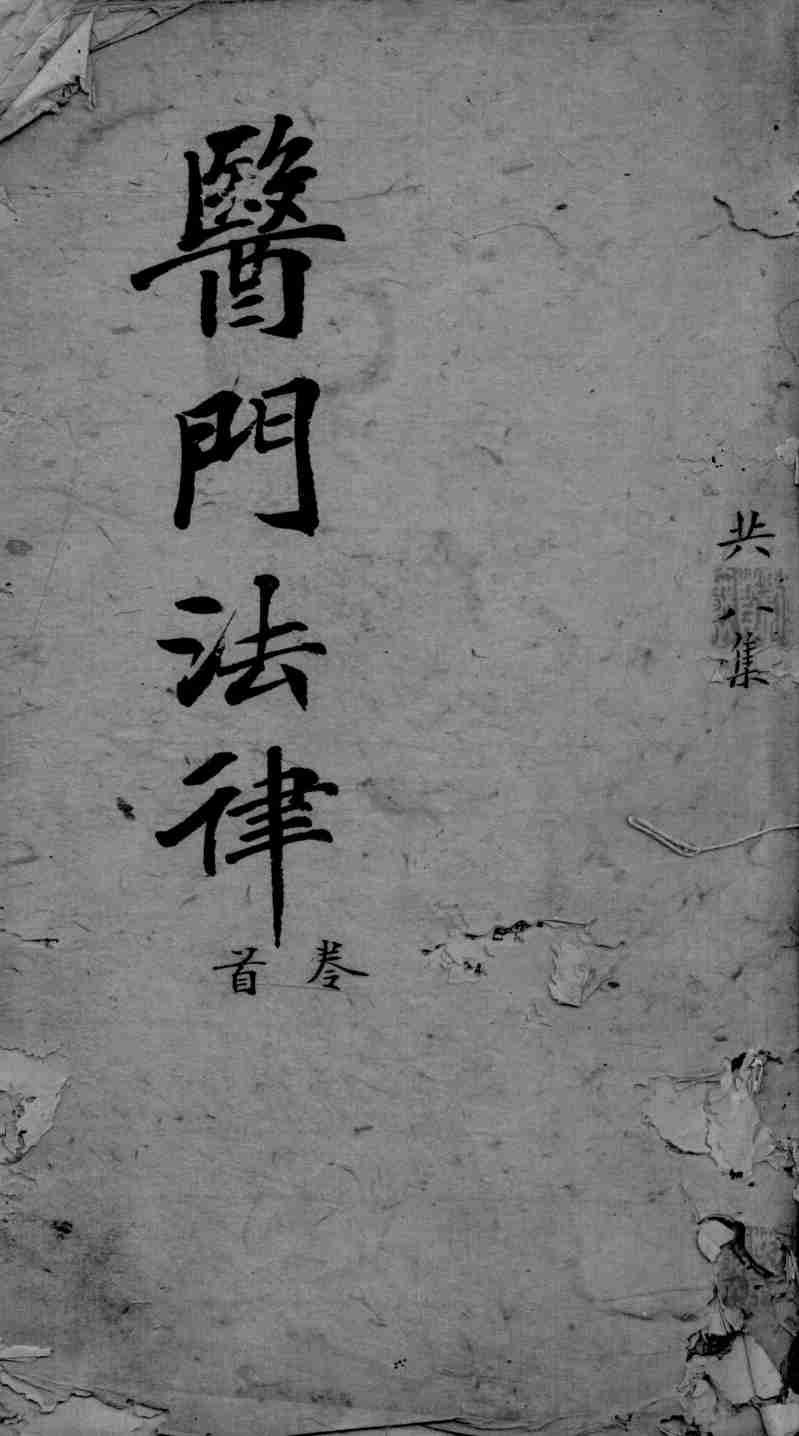 共八集
醫門法律
卷首